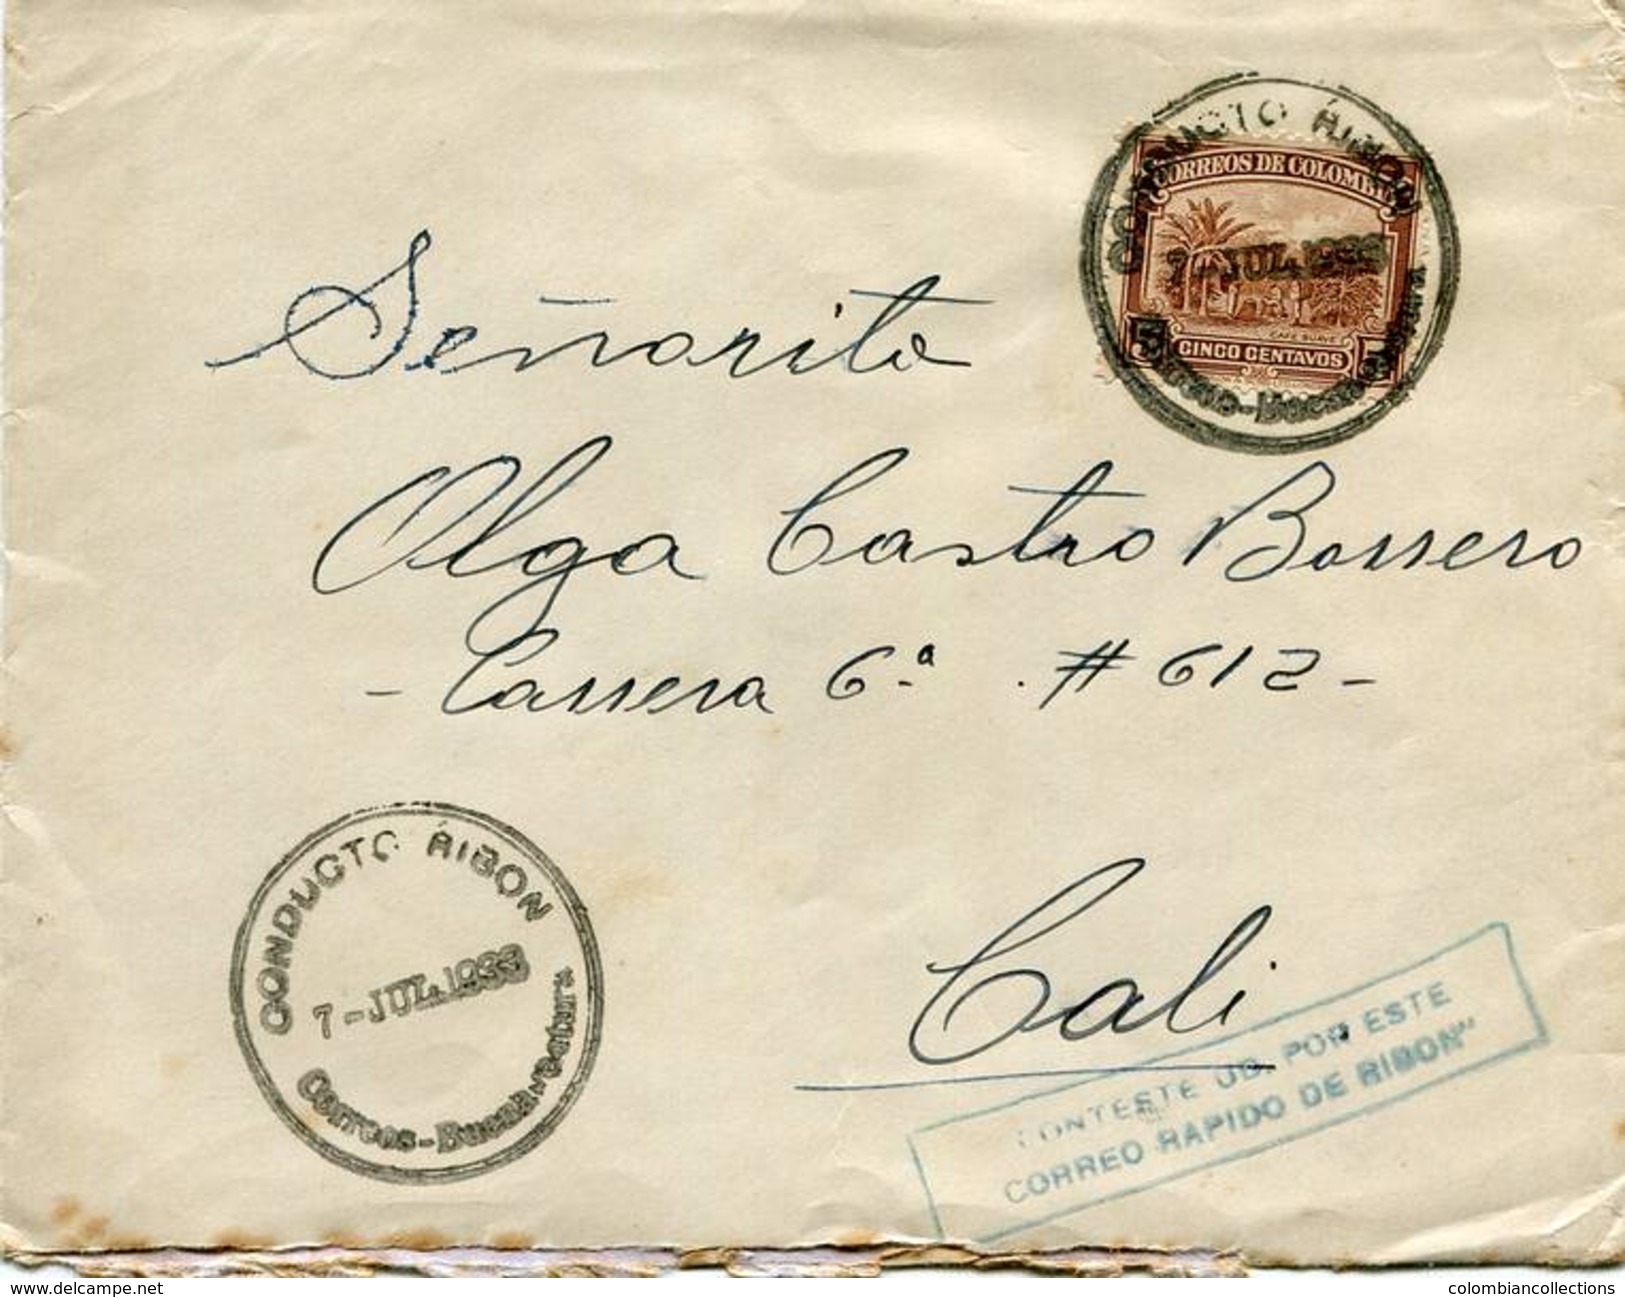 CONDUCTO RIBON
CORREOS DE COLOMBIA
7-JUL.1933
CAFE SUAVE
5 CINCO CENTAVOS 5
Correos-Buenaventura
Señorita
Olga Castro Borrero
- Carrera 6.ª . # 612 -
Cali
CONDUCTO RIBON
7-JUL.1933
Correos-Buenaventura
CONTESTE UD. POR ESTE
CORREO RAPIDO DE RIBON"
delcampe.net
colombiancollections